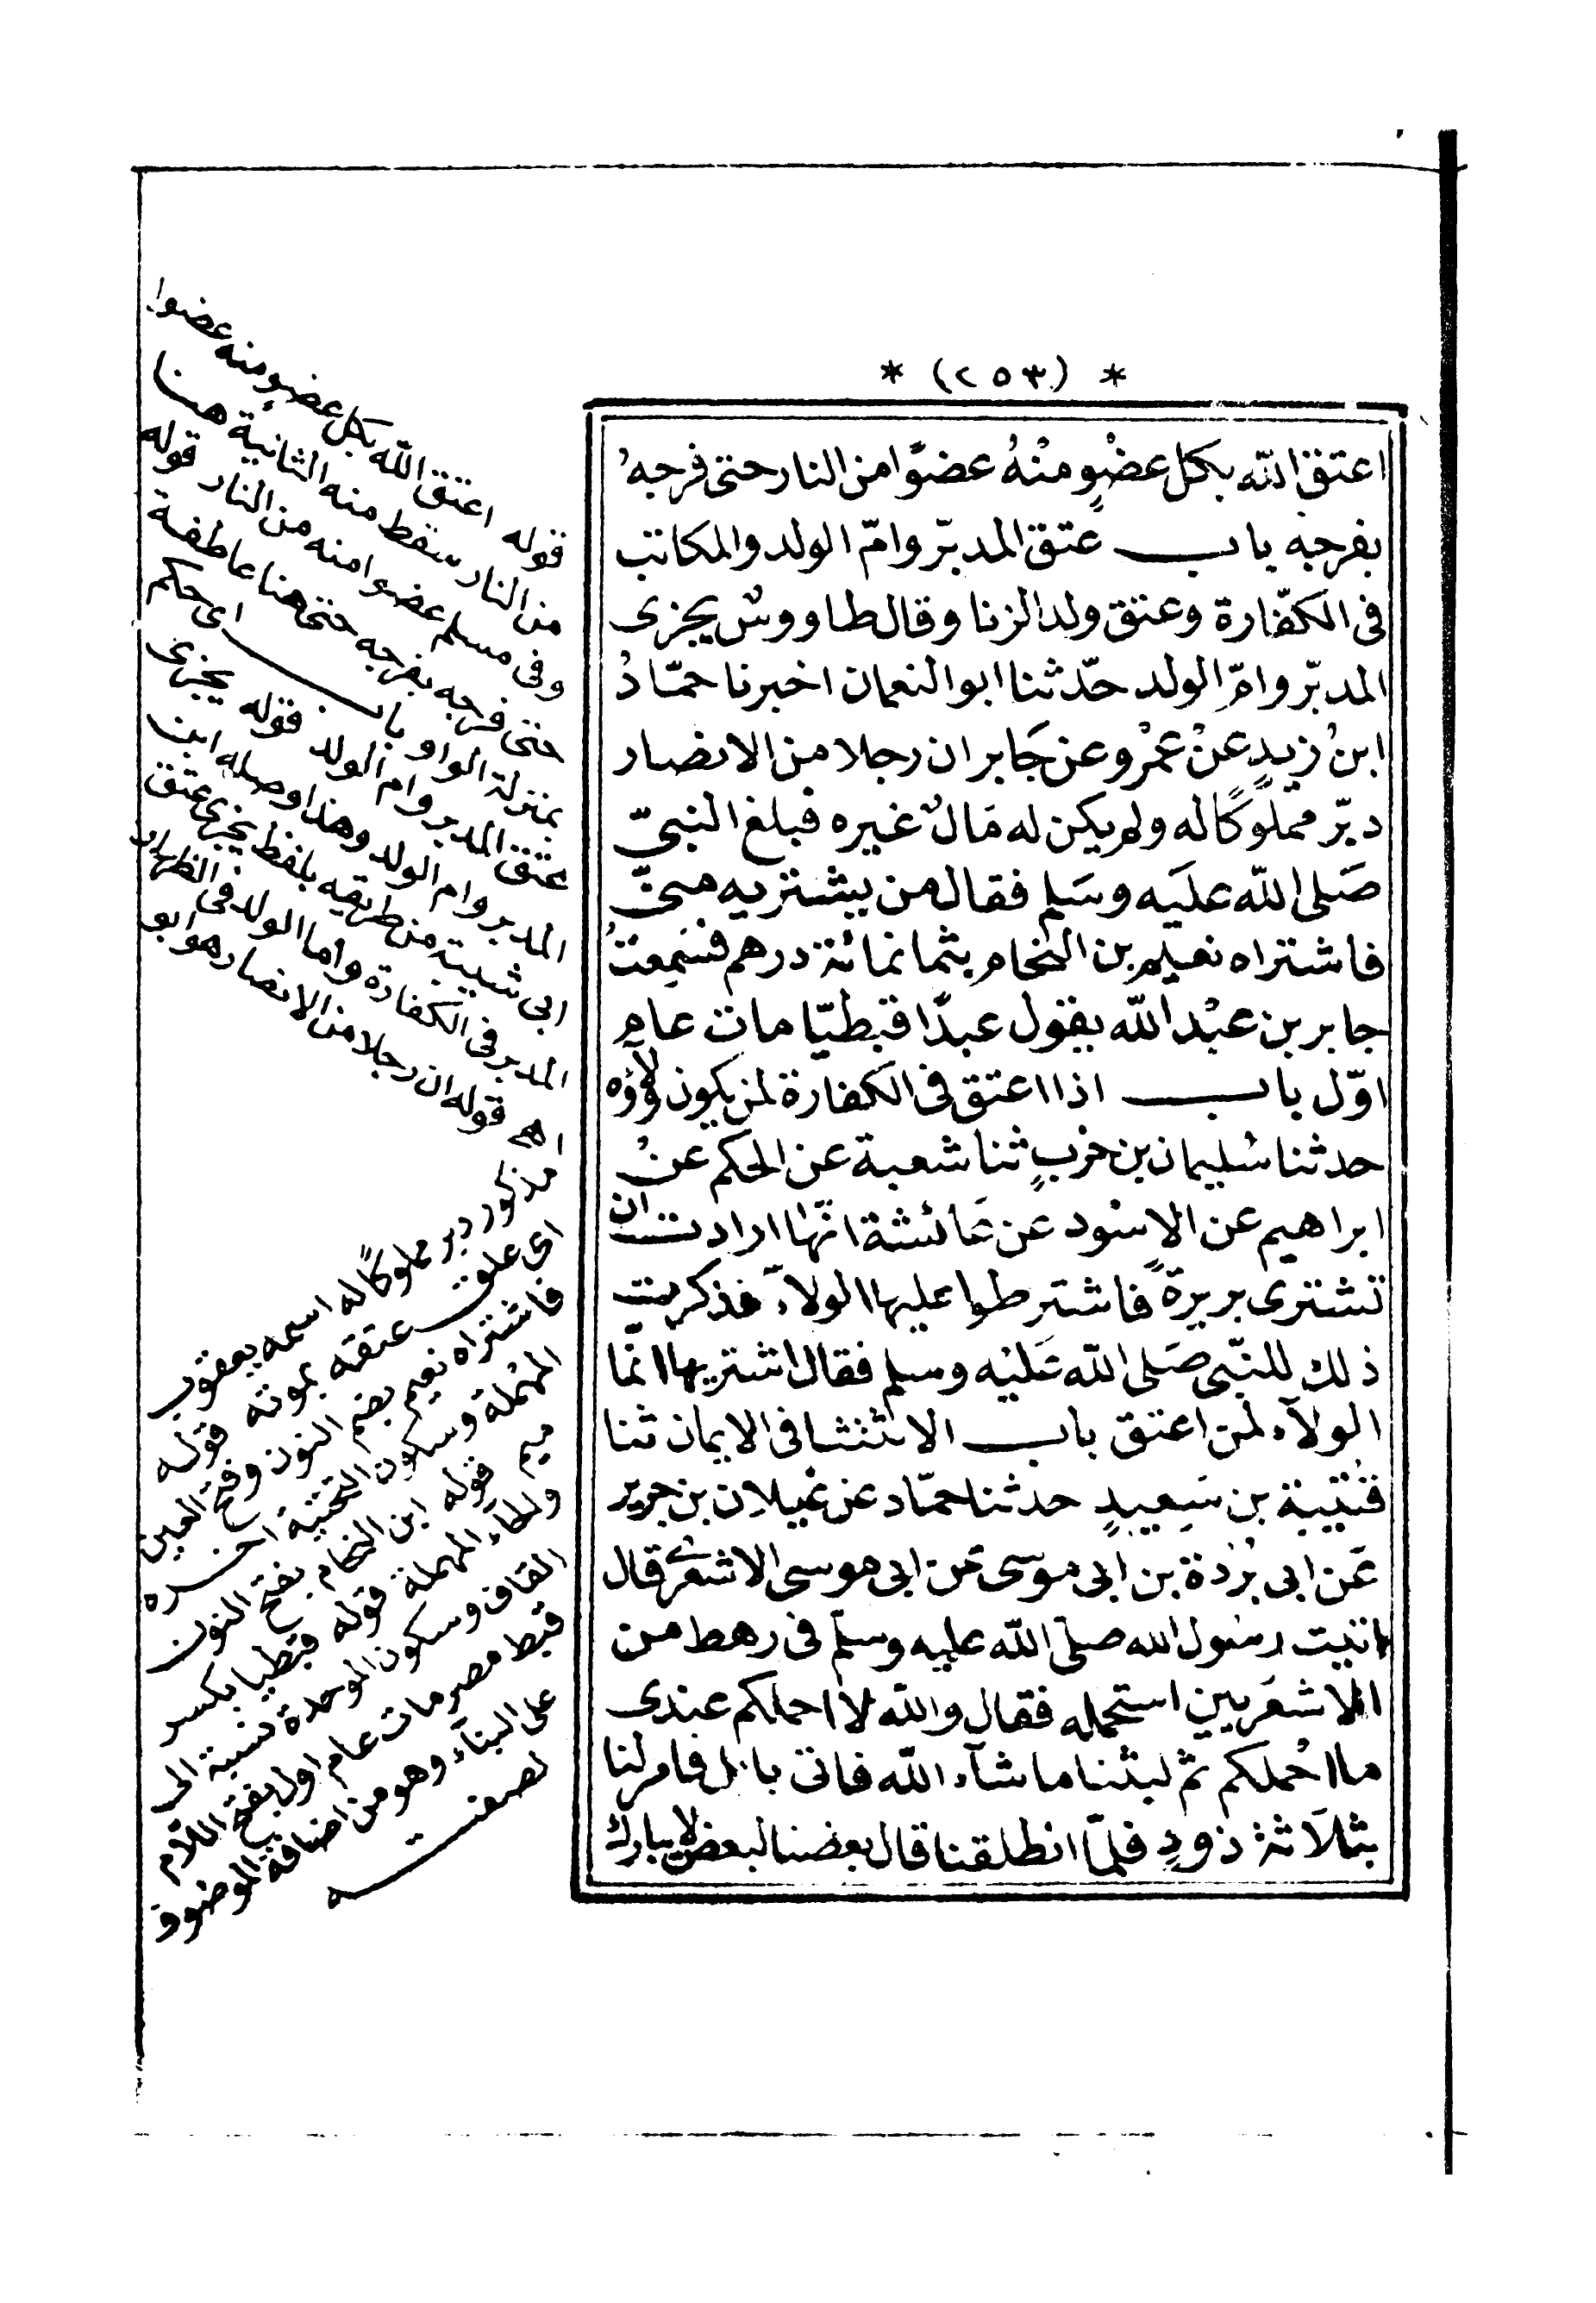 * (٢٥٣) *
اعتق الله بكل عضْوٍ منْهُ عضوًا من النار حتى فرجهُ
بفرجه باب عتق المدبّر وامّ الولد والمكاتب
فى الكفّارة وعتق ولد الزنا وقال طاووسٌ يجزى
المدبّر وامّ الولد حدّثنا ابو النعمان اخبرنا حمّادُ
ابنُ زيدٍ عنْ عمْرو عن جَابر ان رجلا من الانصار
دبّر مملوكًا له ولم يكن له مَالٌ غيره فبلغ النبىّ
صَلى الله علَيه وسَلم فقال من يشتريه منىّ
فاشتراه نعيم بن النخام بثمانمائة درهم فسَمِعتُ
جابر بن عبْد الله يقول عبدًا قبطيّا مات عام
اوّل باب اذا اعتق فى الكفارة لمن يكون ولآؤه
حدثنا سُليمان بن حرْبٍ ثنا شعبة عن الحكم عنْ
ابراهيم عن الاسْود عن عَائشة انّها ارادت ان
تشترى بريرةً فاشترطوا عليها الولآء فذكرت
ذلك للنّبى صَلى الله عَليْه وسلم فقال اشتريها انّما
الولآء لمن اعتق باب الاستثنا فى الايمان ثنا
قُتيبة بن سَعِيدٍ حدثنا حمّاد عن غَيلان بن جرير
عَن ابى بُرْدة بن ابى موَسى عَن ابى موسى الاشعرى قال
اتيت رسُول الله صلىّ الله عليه وسلّم فى رهط من
الاشعَريين استحمله فقال والله لا احملكم عندى
ما احْملكم ثم لبثنا ما شآء الله فاتى بابل فامر لنا
بثلاَثة ذودٍ فلمّا انطلقنا قال بعضنا لبعض لا يبارك
قوله اعتق الله بكل عضو منه عضوا
من النار سقط منه الثانية هنا
وفى مسلم عضوا منه من النار قوله
حتى فرجه بفرجه حتى هنا عاطفة
بمنزلة الواو باب اى حكم
عتق المدبر وام الولد قوله يجزى
المدبر وام الولد وهذا وصله ابن
ابى شيبة من طريقه بلفظ يجزى عتق
المدبر فى الكفارة وام الولد فى الظهار
اهـ قوله ان رجلا من الانصار هو ابو
مذكور دبر مملوكًا له اسمه يعقوب
اى علق عتقه بموته قوله
فاشتراه نعيم بضم النون وفتح العين
المهْملة وسكون التحتية اخره
ميم قوله ابن النخام بفتح النون
والحاء المهملة قوله قبطيا بكسر
القاف وسكون الموحدة نسبة الى
قبط مصر مات عام اول بفتح اللّام
على البنآء وهو من اضافة الموضوف
لصفته